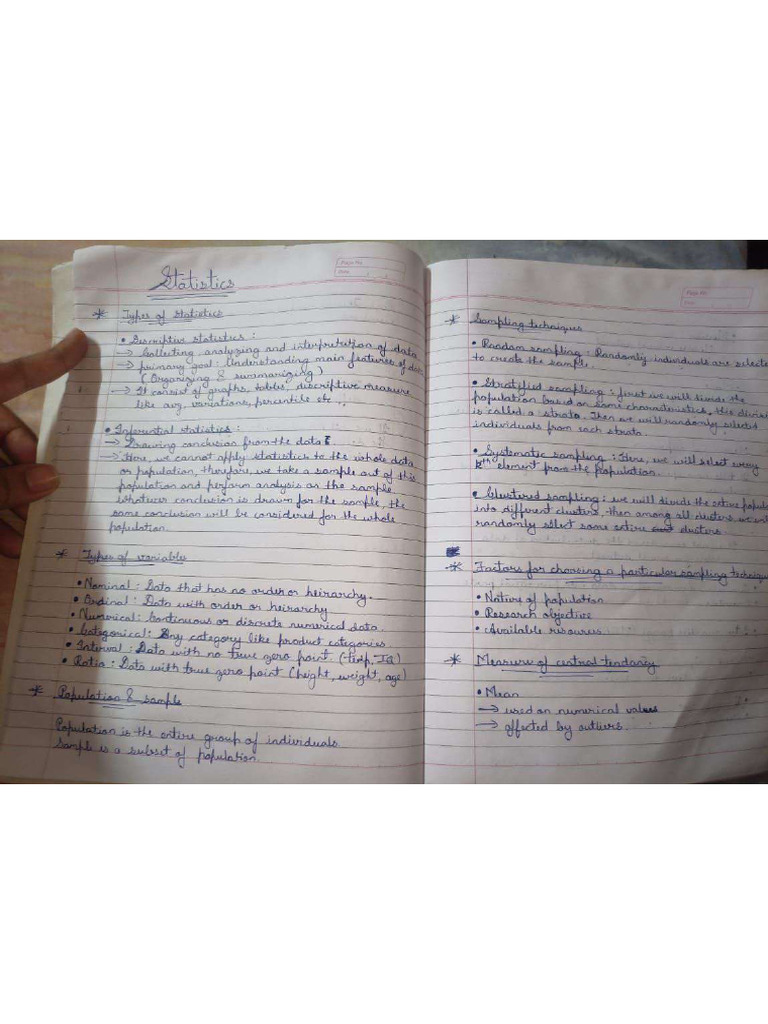 Statistics
Page No.
Date
* Types of statistics
• Discriptive statistics :
→ Collecting, analyzing and interpretation of data
→ primary goal : Understanding main features of data
( Organizing & summarizing )
→ It consist of graphs, tables, discriptive measure
like avg, variations, percentile etc .
• Inferential statistics :
→ Drawing conclusion from the data
→ Here, we cannot apply statistics to the whole data
or population, therefore, we take a sample out of this
population and perform analysis on the sample.
whatever conclusion is drawn for the sample, the
same conclusion will be considered for the whole
population.
* Types of variables
• Nominal : Data that has no order or heirarchy.
• Ordinal : Data with order or heirarchy
• Numerical : Continuous or discrete numerical data.
• Categorical : Any category like product categories.
• Interval : Data with no true zero point. (temp, IQ)
• Ratio : Data with true zero point (height, weight, age)
* Population & sample
Population is the entire group of individuals.
Sample is a subset of population.
Page No.
Date
* Sampling techniques
• Random sampling : Randomly individuals are selecte
to create the sample.
• Stratified sampling : first we will divide the
population based on some characteristics, this divisi
is called a strata. Then we will randomly select
individuals from each strata.
• Systematic sampling : Here, we will select every
kth element from the population.
• Clustered sampling : we will divide the entire popula
into different clusters, then among all clusters, we
randomly select some entire clusters.
* Factors for choosing a particular sampling techniqu
• Nature of population
• Research objective
• Available resources.
* Measure of central tendancy
• Mean
→ used on numerical values
→ affected by outliers.